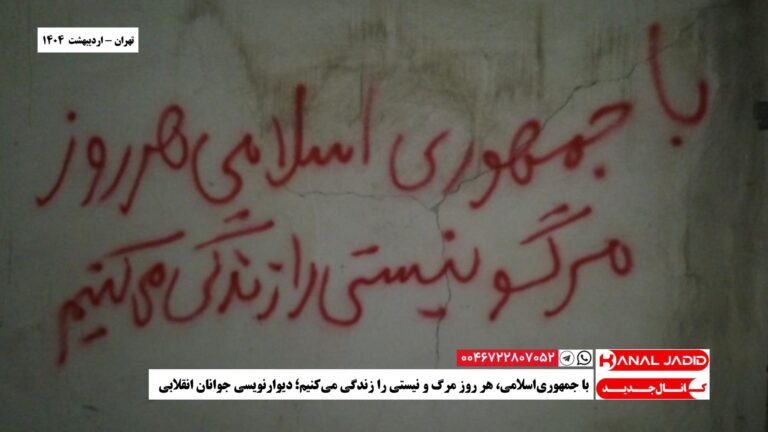 تهران - اردیبهشت ۱۴۰۴
با جمهوری اسلامی هر روز
مرگ و نیستی را زندگی می کنیم
۰۰۴۶۷۲۲۸۰۷۰۵۲
KANAL JADID
کانال جدید
با جمهوری‌اسلامی، هر روز مرگ و نیستی را زندگی می‌کنیم؛ دیوارنویسی جوانان انقلابی